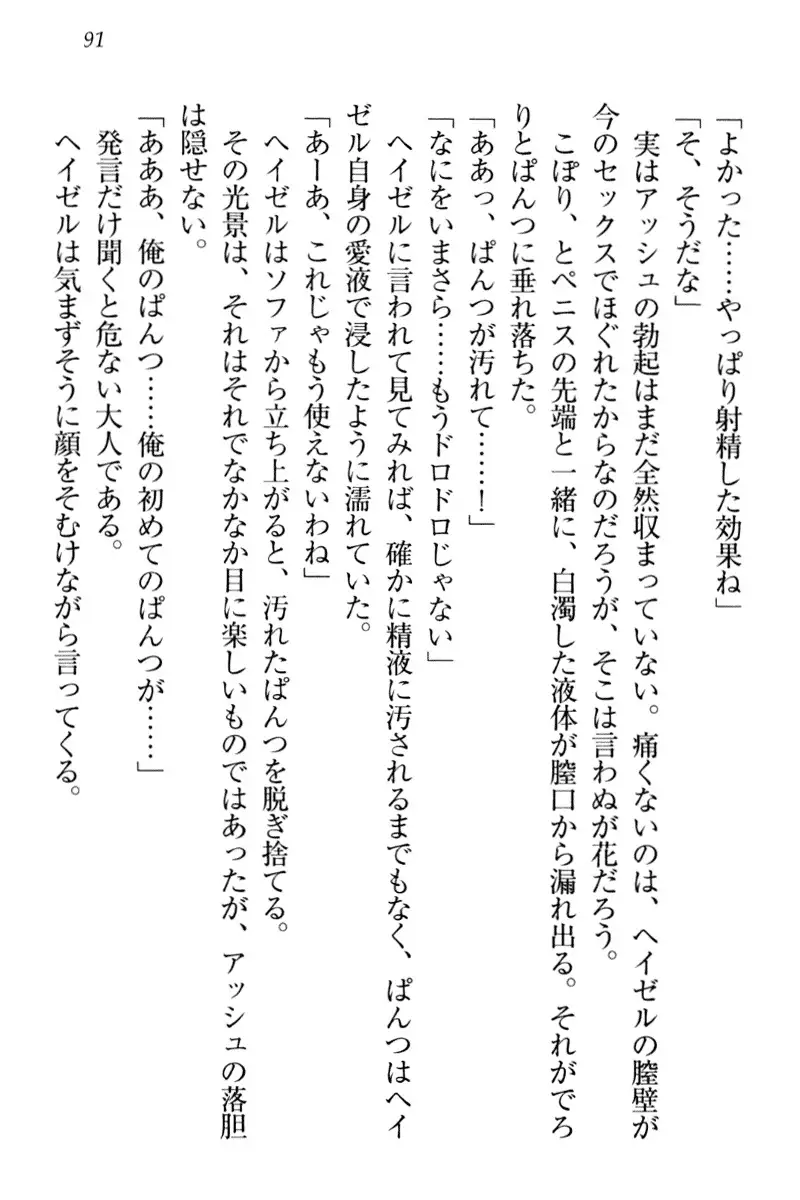 91
「よかった……やっぱり射精した効果ね」
「そ、そうだな」
　実はアッシュの勃起はまだ全然収まっていない。痛くないのは、ヘイゼルの膣壁が
今のセックスでほぐれたからなのだろうが、そこは言わぬが花だろう。
　こぽり、とペニスの先端と一緒に、白濁した液体が膣口から漏れ出る。それがでろ
りとぱんつに垂れ落ちた。
「ああっ、ぱんつが汚れて……！」
「なにをいまさら……もうドロドロじゃない」
　ヘイゼルに言われて見てみれば、確かに精液に汚されるまでもなく、ぱんつはヘイ
ゼル自身の愛液で浸したように濡れていた。
「あーあ、これじゃもう使えないわね」
　ヘイゼルはソファから立ち上がると、汚れたぱんつを脱ぎ捨てる。
　その光景は、それはそれでなかなか目に楽しいものではあったが、アッシュの落胆
は隠せない。
「あああ、俺のぱんつ……俺の初めてのぱんつが……」
　発言だけ聞くと危ない大人である。
　ヘイゼルは気まずそうに顔をそむけながら言ってくる。